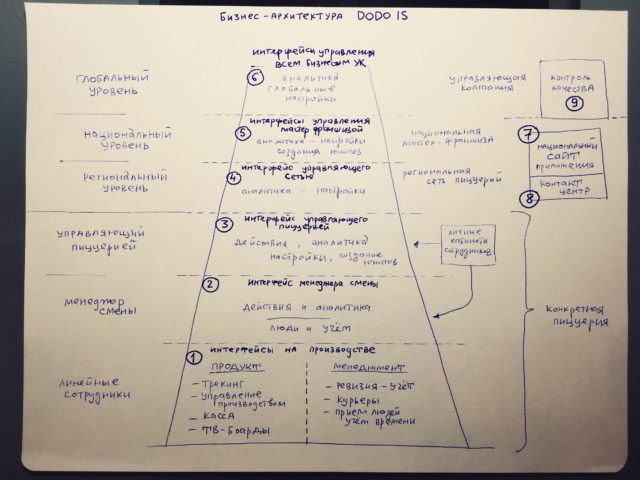 БИЗНЕС-АРХИТЕКТУРА DODO IS
ГЛОБАЛЬНЫЙ
УРОВЕНЬ
ИНТЕРФЕЙСЫ УПРАВЛЕНИЯ
ВСЕМ БИЗНЕСОМ УК
6
АНАЛИТИКА
ГЛОБАЛЬНЫЕ
НАСТРОЙКИ
УПРАВЛЯЮЩАЯ
КОМПАНИЯ
КОНТРОЛЬ
КАЧЕСТВА
9
НАЦИОНАЛЬНЫЙ
УРОВЕНЬ
5
ИНТЕРФЕЙСЫ УПРАВЛЕНИЯ
МАСТЕР ФРАНШИЗОЙ
АНАЛИТИКА - НАСТРОЙКИ
СОЗДАНИЕ ЮНИТОВ
НАЦИОНАЛЬНАЯ
МАСТЕР-ФРАНШИЗА
7
НАЦИОНАЛЬНЫЙ
САЙТ
ПРИЛОЖЕНИЯ
РЕГИОНАЛЬНЫЙ
УРОВЕНЬ
4
ИНТЕРФЕЙС УПРАВЛЯЮЩЕГО
СЕТЬЮ
АНАЛИТИКА - НАСТРОЙКИ
РЕГИОНАЛЬНАЯ
СЕТЬ ПИЦЦЕРИЙ
КОНТАКТ
ЦЕНТР
8
УПРАВЛЯЮЩИЙ
ПИЦЦЕРИЕЙ
3
ИНТЕРФЕЙС УПРАВЛЯЮЩЕГО
ПИЦЦЕРИЕЙ
ДЕЙСТВИЯ, АНАЛИТИКА
НАСТРОЙКИ, СОЗДАНИЕ
ЮНИТОВ
ЛИЧНЫЕ
КАБИНЕТЫ
СОТРУДНИКОВ
МЕНЕДЖЕР
СМЕНЫ
2
ИНТЕРФЕЙС МЕНЕДЖЕРА СМЕНЫ
ДЕЙСТВИЯ И АНАЛИТИКА
ЛЮДИ И УЧЁТ
КОНКРЕТНАЯ
ПИЦЦЕРИЯ
ЛИНЕЙНЫЕ
СОТРУДНИКИ
1
ИНТЕРФЕЙСЫ НА ПРОИЗВОДСТВЕ
ПРОДУКТ
- ТРЕКИНГ
- УПРАВЛЕНИЕ
ПРОИЗВОДСТВОМ
- КАССА
- ТВ-БОАРДЫ
МЕНЕДЖМЕНТ
- РЕВИЗИЯ - УЧЁТ
- КУРЬЕРЫ
- ПРИЕМ ЛЮДЕЙ
УЧЕТ ВРЕМЕНИ